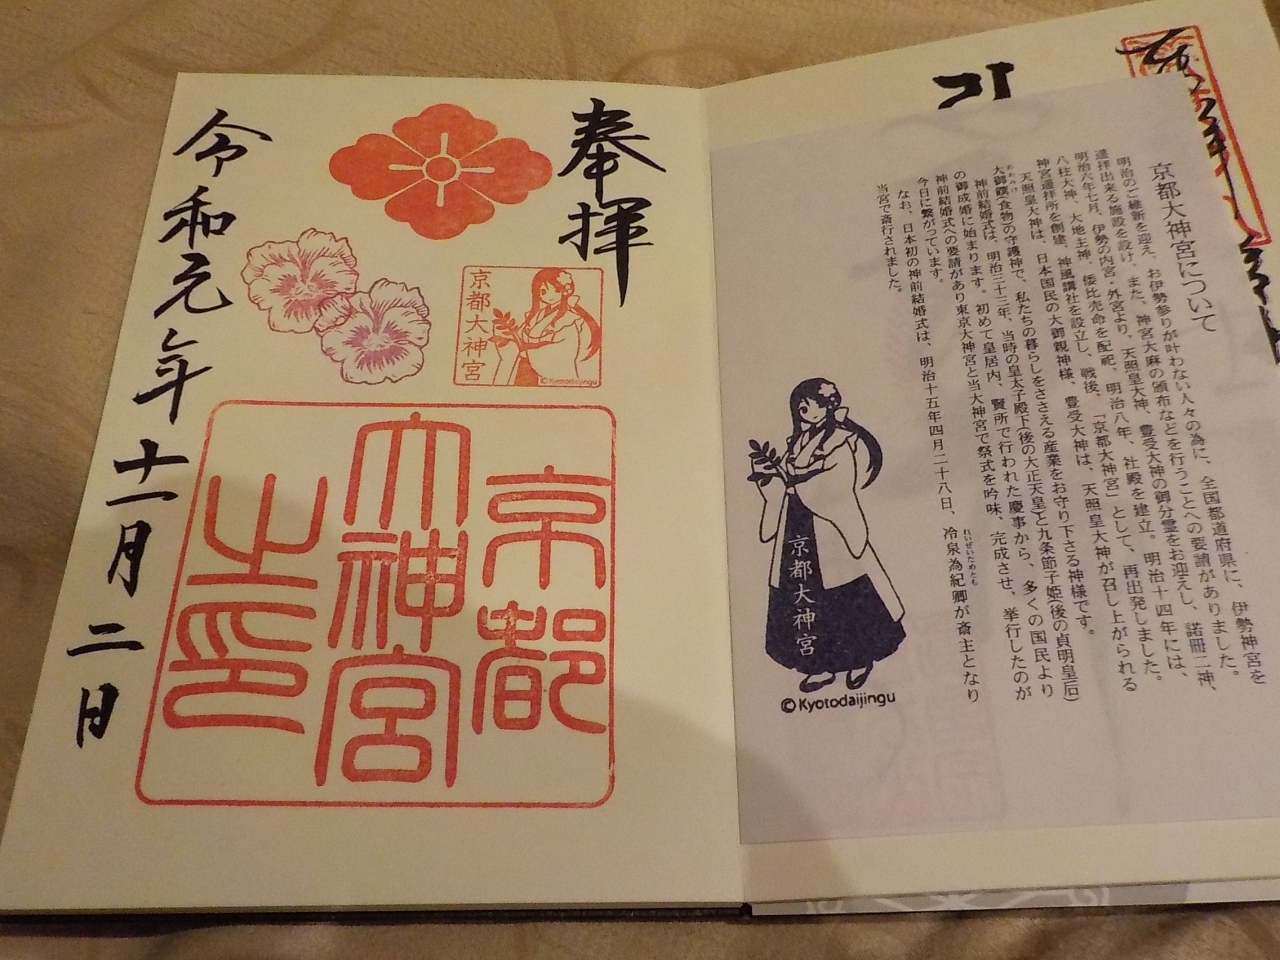 奉拝
京都大神宮
©Kyotodaijingu
京都
大神宮
之印
令和元年十一月二日
京都大神宮について
明治のご維新を迎え、お伊勢参りが叶わない人々の為に、全国都道府県に、伊勢神宮を
遥拝出来る施設を設け、また、神宮大麻の頒布などを行うことへの要請がありました。
明治六年七月、伊勢の内宮・外宮より、天照皇大神、豊受大神の御分霊をお迎えし、諾冊二神、
八柱大神、大地主神、倭比売命を配祀、明治八年、社殿を建立。明治十四年には、
神宮遥拝所を創建、神風講社を設立し、戦後、「京都大神宮」として、再出発しました。
天照皇大神は、日本国民の大御親神様、豊受大神は、天照皇大神が召し上がられる
大御饌(食物の守護神で、私たちの暮らしをささえる産業をお守り下さる神様です。
神前結婚式は、明治三十三年、当時の皇太子殿下(後の大正天皇)と九条節子姫(後の貞明皇后)
の御成婚に始まります。初めて皇居内、賢所で行われた慶事から、多くの国民より
神前結婚式への要請があり東京大神宮と当大神宮で祭式を吟味、完成させ、挙行したのが
今日に繋がっています。
なお、日本初の神前結婚式は、明治十五年四月二十八日、冷泉為紀卿が斎主となり
当宮で斎行されました。
京都大神宮
©Kyotodaijingu